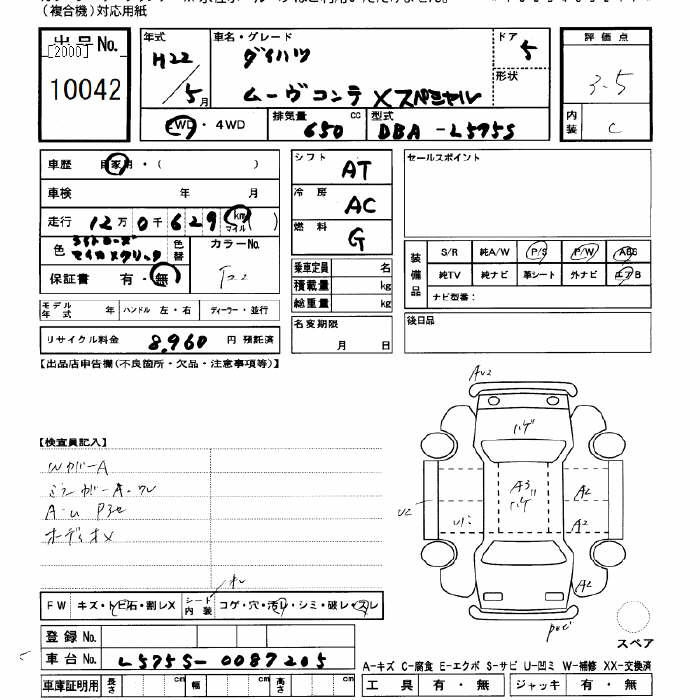 （複合機）対応用紙
出品No.
[2000]
10042
年式 H22／5月
車名・グレード
ダイハツ
ムーヴコンテ Xスペシャル
ドア 5
形状
評価点
3.5
内装 C
2WD・4WD
排気量 650 cc
型式 DBA-L575S
車歴 自家用・（　）
車検 年 月
走行 12万0千629 km マイル
色 ライトローズマイカメタリック
色替
カラーNo. T22
保証書 有・無
モデル年式 年
ハンドル 左・右
ディーラー・並行
リサイクル料金 8,960 円 預託済
シフト AT
冷房 AC
燃料 G
乗車定員 名
積載量 kg
総重量 kg
名変期限
月 日
セールスポイント
装備品
S/R 純A/W P/S P/W ABS
純TV 純ナビ 革シート 外ナビ エアB
ナビ型番：
後日品
【出品店申告欄(不良箇所・欠品・注意事項等)】
【検査員記入】
Wガバ-A
オーディオX
FW キズ・トビ石・割レX
シート内装 コゲ・穴・汚レ・シミ・破レ・スレ
登録No.
車台No. L575S-0087205
車庫証明用 長さ cm 幅 cm 高さ cm
AU2
ハゲ
A3
ハゲ
A2
A2
A2
U2
U1
スペア
A-キズ C-腐食 E-エクボ S-サビ U-凹ミ W-補修 XX-交換済
工具 有・無
ジャッキ 有・無